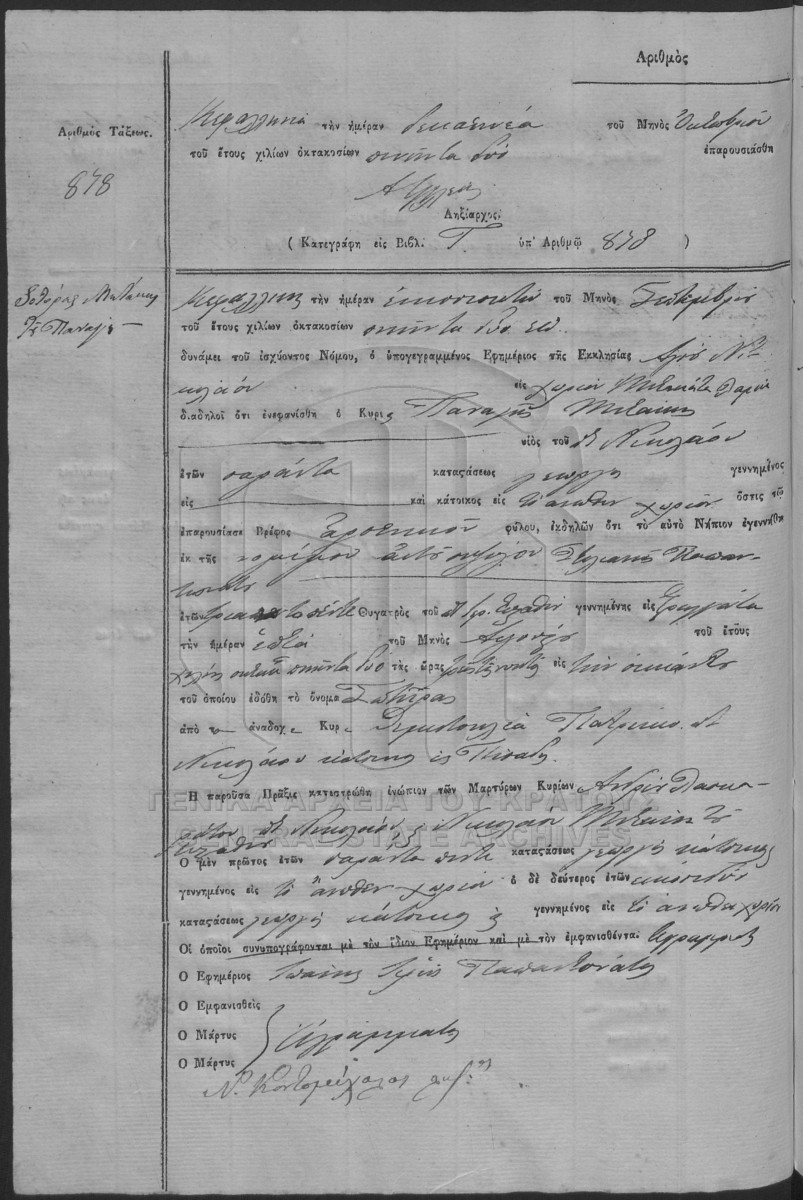 Αριθμὸς
Αριθμὸς Τάξεως.
878
Κεφαλληνία τὴν ἡμέραν δεκαεννέα τοῦ Μηνὸς Ὀκτωβρίου
τοῦ ἔτους χιλίων ὀκτακοσίων πενῆντα δύο ἐπαρουσιάσθη
Ληξίαρχος.
( Κατεγράφη εἰς Βιβλ. Γ. ὑπ' Αριθμῷ 878 )
Σοτήρης Μητάκης
Παναγῆ
Κεφαλληνία τὴν ἡμέραν εἰκοσιοκτὼ τοῦ Μηνὸς Σεπτεμβρίου
τοῦ ἔτους χιλίων ὀκτακοσίων πενῆντα δύο
δυνάμει τοῦ ἰσχύοντος Νόμου, ὁ ὑπογεγραμμένος Ἐφημέριος τῆς Ἐκκλησίας Αγίου Νι-
κολάου εἰς χωρίον Μιτακάτα
διαδηλοῖ ὅτι ἐνεφανίσθη ὁ Κυρις Παναγῆς Μιτάκης
υἱὸς τοῦ Νικολάου
ἐτῶν σαράντα καταςάσεως γεωργὸς γεννημένος
εἰς καὶ κάτοικος εἰς τὸ ἄνωθεν χωρίον ὅςτις τῷ
ἐπαρουσίασε Βρέφος Σαρσενικοῦ φύλου, ἐκδηλῶν ὅτι τὸ αὐτὸ Νήπιον ἐγεννήθη
ἐκ τῆς νομίμου αὐτοῦ συζύγου Στιλιανῆς Παπαν-
τωνάτου
ἐτῶν τριάντα πέντε Θυγατρὸς τοῦ γεννημένης εἰς
τὴν ἡμέραν ἑπτὰ τοῦ Μηνὸς Αὐγούστου τοῦ ἔτους
χιλίων ὀκτακοσίων πενῆντα δύο τὰς ὥρας εἰς τὴν οἰκίαν του
τοῦ ὁποίου ἐδόθη τὸ ὄνομα Σωτῆρος
ἀπὸ τὸν ἀναδοχ Κυρ Θεμιστοκλέα Πατρίκιο
Νικολάου κάτοικος εἰς
Ἡ παροῦσα Πρᾶξις κατεστρώθη ἐνώπιον τῶν Μαρτύρων Κυρίων Ανδρέα Λασκα-
ράτου Νικολάου Νικολάου Μιτάκη τοῦ
Ὁ μὲν πρῶτος ἐτῶν σαράντα πέντε καταςάσεως γεωργὸς κάτοικος
γεννημένος εἰς τὸ ἄνωθεν χωρίον ὁ δὲ δεύτερος ἐτῶν εἰκοσιδύο
καταςάσεως γεωργὸς κάτοικος γεννημένος εἰς τὸ ἄνωθεν χωρίον
Οἱ ὁποῖοι συνυπογράφονται μὲ τὸν ἴδιον Ἐφημέριον καὶ μὲ τὸν ἐμφανισθέντα. ἀγράμματοι
Ὁ Ἐφημέριος Ἰωάννης Ἱερεὺς Παπαντονάτος
Ὁ Ἐμφανισθεὶς
Ὁ Μάρτυς Ἀγράμματοι
Ὁ Μάρτυς
ΓΕΝΙΚΑ ΑΡΧΕΙΑ ΤΟΥ ΚΡΑΤΟΥΣ
GENERAL STATE ARCHIVES